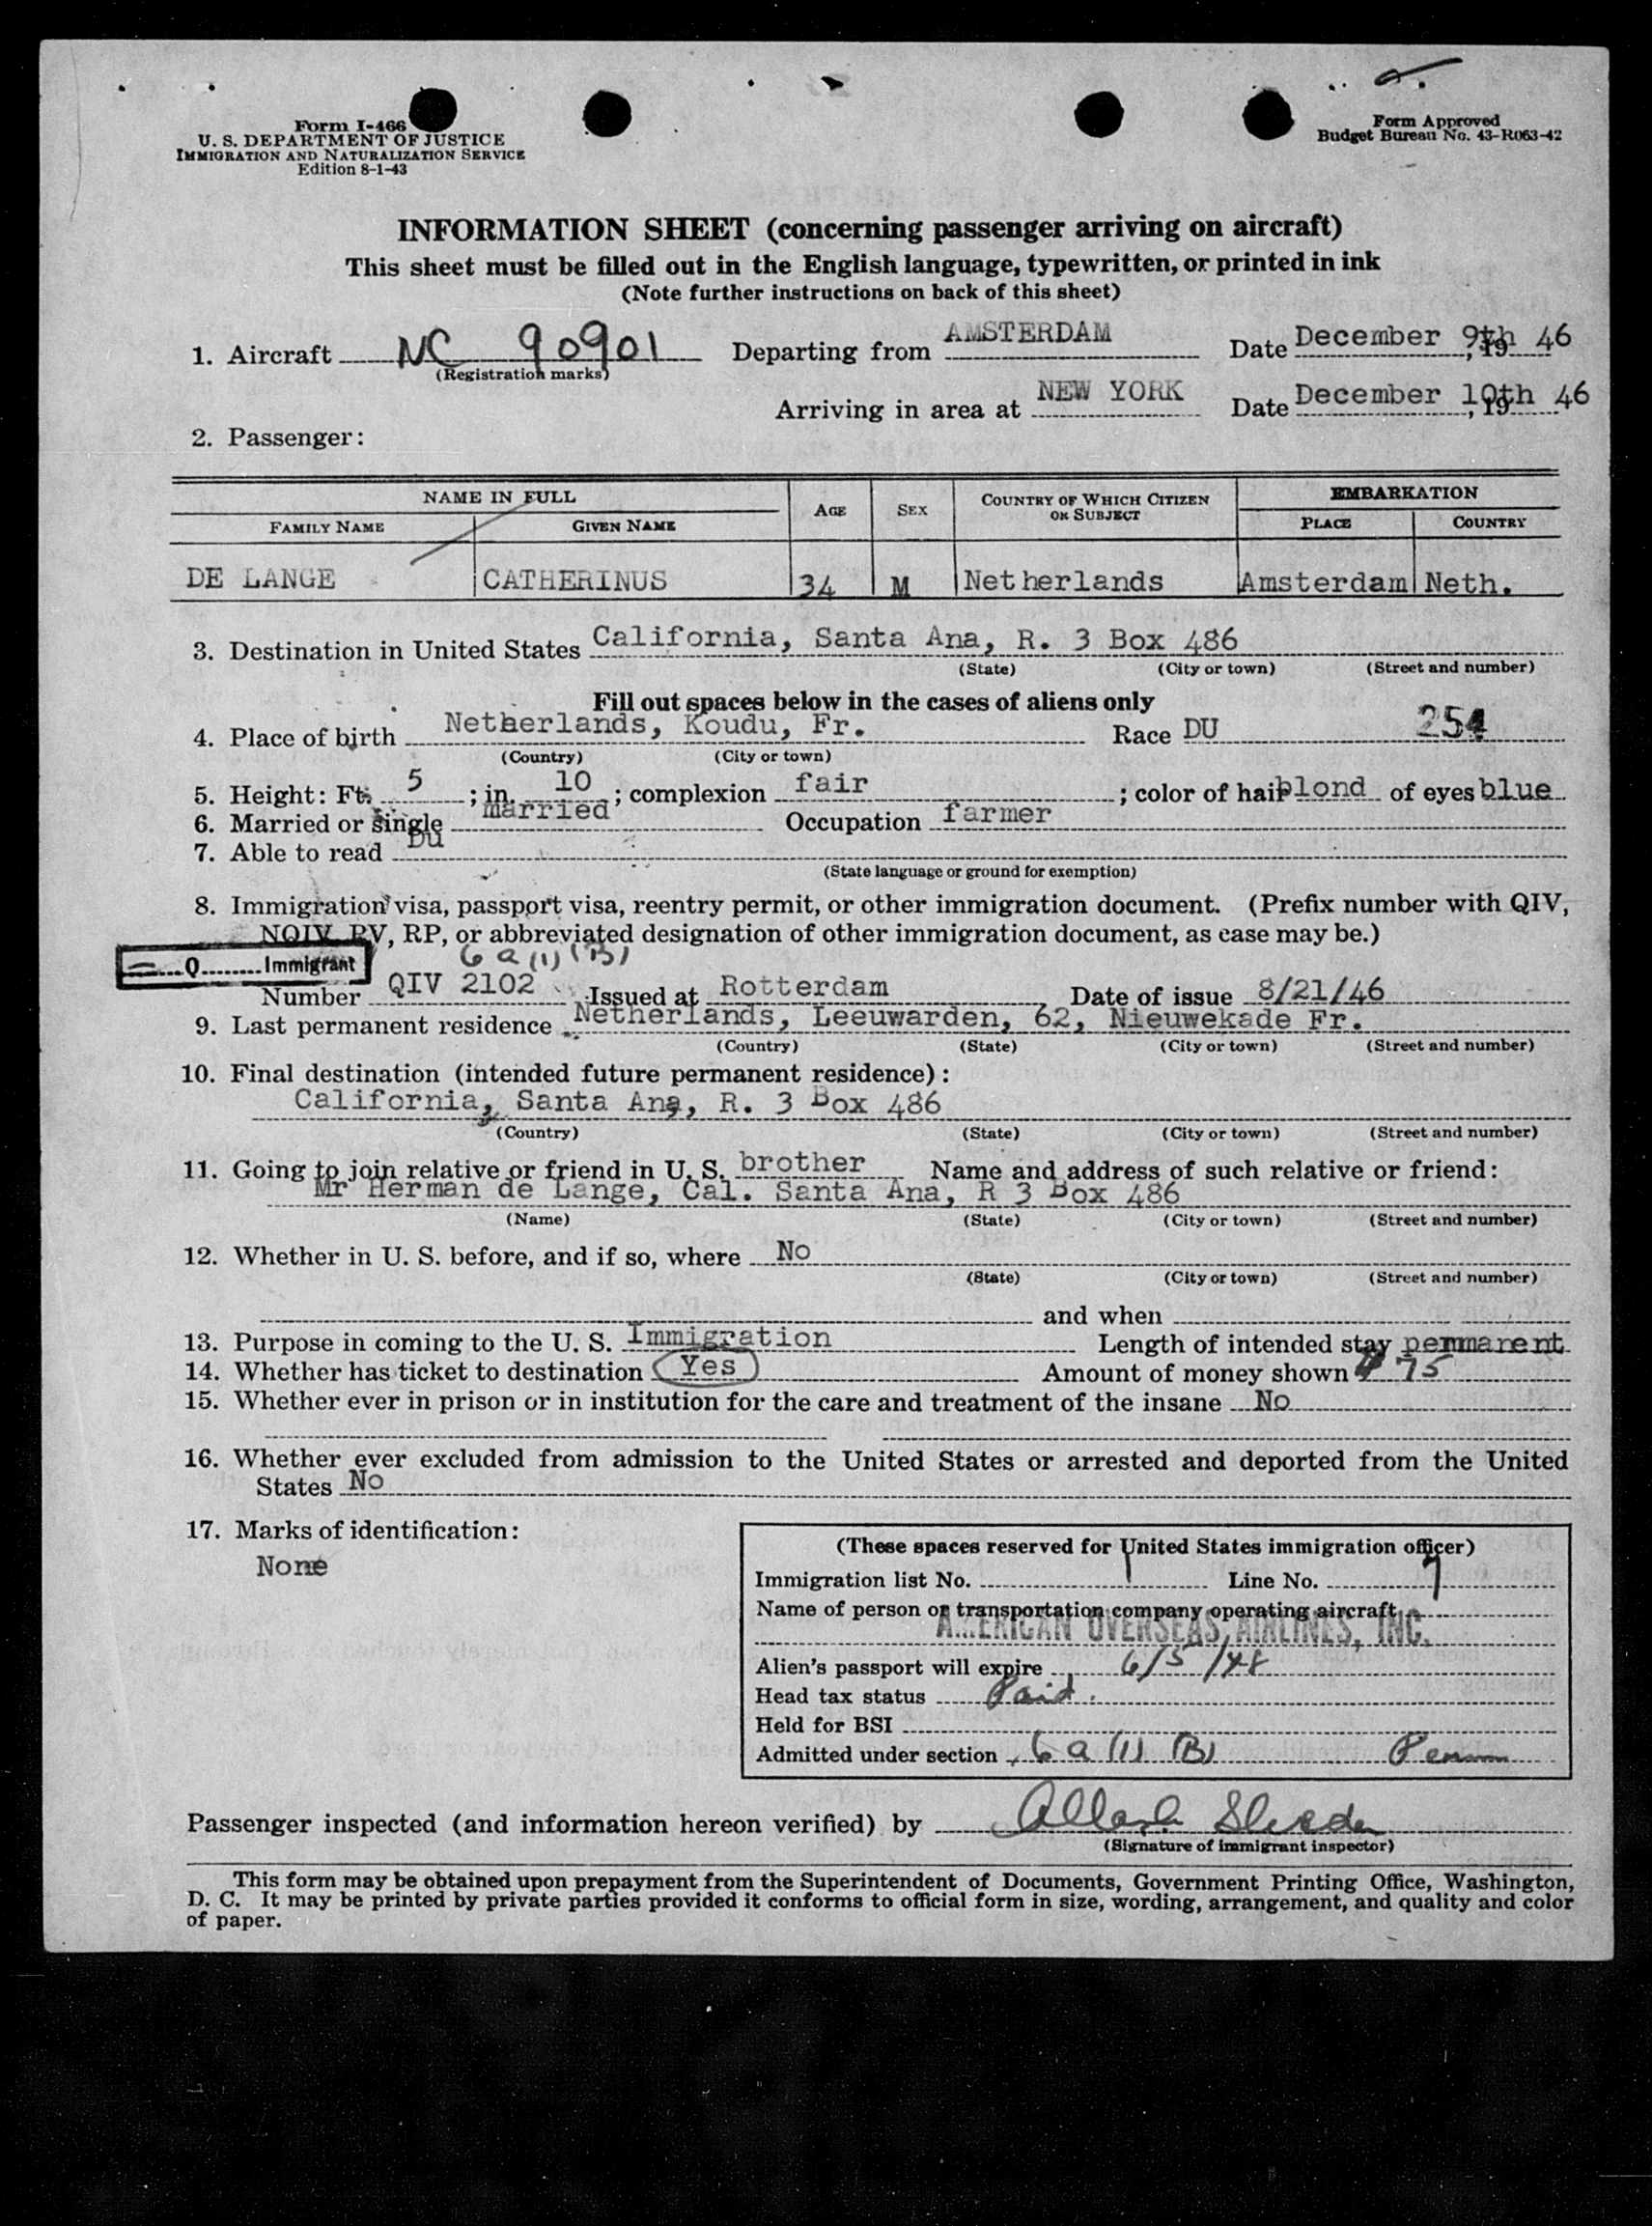 Form I-466
U. S. DEPARTMENT OF JUSTICE
IMMIGRATION AND NATURALIZATION SERVICE
Edition 8-1-43
Form Approved
Budget Bureau No. 43-R063-42
INFORMATION SHEET (concerning passenger arriving on aircraft)
This sheet must be filled out in the English language, typewritten, or printed in ink
(Note further instructions on back of this sheet)
1. Aircraft NC 90901 Departing from AMSTERDAM Date December 9th, 19 46
(Registration marks)
Arriving in area at NEW YORK Date December 10th, 19 46
2. Passenger:
NAME IN FULL AGE SEX COUNTRY OF WHICH CITIZEN OR SUBJECT EMBARKATION
FAMILY NAME GIVEN NAME PLACE COUNTRY
DE LANGE CATHERINUS 34 M Netherlands Amsterdam Neth.
3. Destination in United States California, Santa Ana, R. 3 Box 486
(State) (City or town) (Street and number)
Fill out spaces below in the cases of aliens only
4. Place of birth Netherlands, Koudu, Fr. Race DU 254
(Country) (City or town)
5. Height: Ft. 5 ; in. 10 ; complexion fair ; color of hair blond of eyes blue
6. Married or single married Occupation farmer
7. Able to read Du
(State language or ground for exemption)
8. Immigration visa, passport visa, reentry permit, or other immigration document. (Prefix number with QIV,
NQIV, PV, RP, or abbreviated designation of other immigration document, as case may be.)
Q Immigrant 6 a (1) (B)
Number QIV 2102 Issued at Rotterdam Date of issue 8/21/46
9. Last permanent residence Netherlands, Leeuwarden, 62, Nieuwekade Fr.
(Country) (State) (City or town) (Street and number)
10. Final destination (intended future permanent residence):
California, Santa Ana, R. 3 Box 486
(Country) (State) (City or town) (Street and number)
11. Going to join relative or friend in U. S. brother Name and address of such relative or friend:
Mr Herman de Lange, Cal. Santa Ana, R 3 Box 486
(Name) (State) (City or town) (Street and number)
12. Whether in U. S. before, and if so, where No
(State) (City or town) (Street and number)
and when
13. Purpose in coming to the U. S. Immigration Length of intended stay permanent
14. Whether has ticket to destination Yes Amount of money shown $ 75
15. Whether ever in prison or in institution for the care and treatment of the insane No
16. Whether ever excluded from admission to the United States or arrested and deported from the United
States No
17. Marks of identification:
None
(These spaces reserved for United States immigration officer)
Immigration list No. 1 Line No. 7
Name of person or transportation company operating aircraft
AMERICAN OVERSEAS AIRLINES, INC.
Alien's passport will expire 6/5/48
Head tax status Paid.
Held for BSI
Admitted under section 6 a (1) (B)
Passenger inspected (and information hereon verified) by
(Signature of immigrant inspector)
This form may be obtained upon prepayment from the Superintendent of Documents, Government Printing Office, Washington,
D. C. It may be printed by private parties provided it conforms to official form in size, wording, arrangement, and quality and color
of paper.